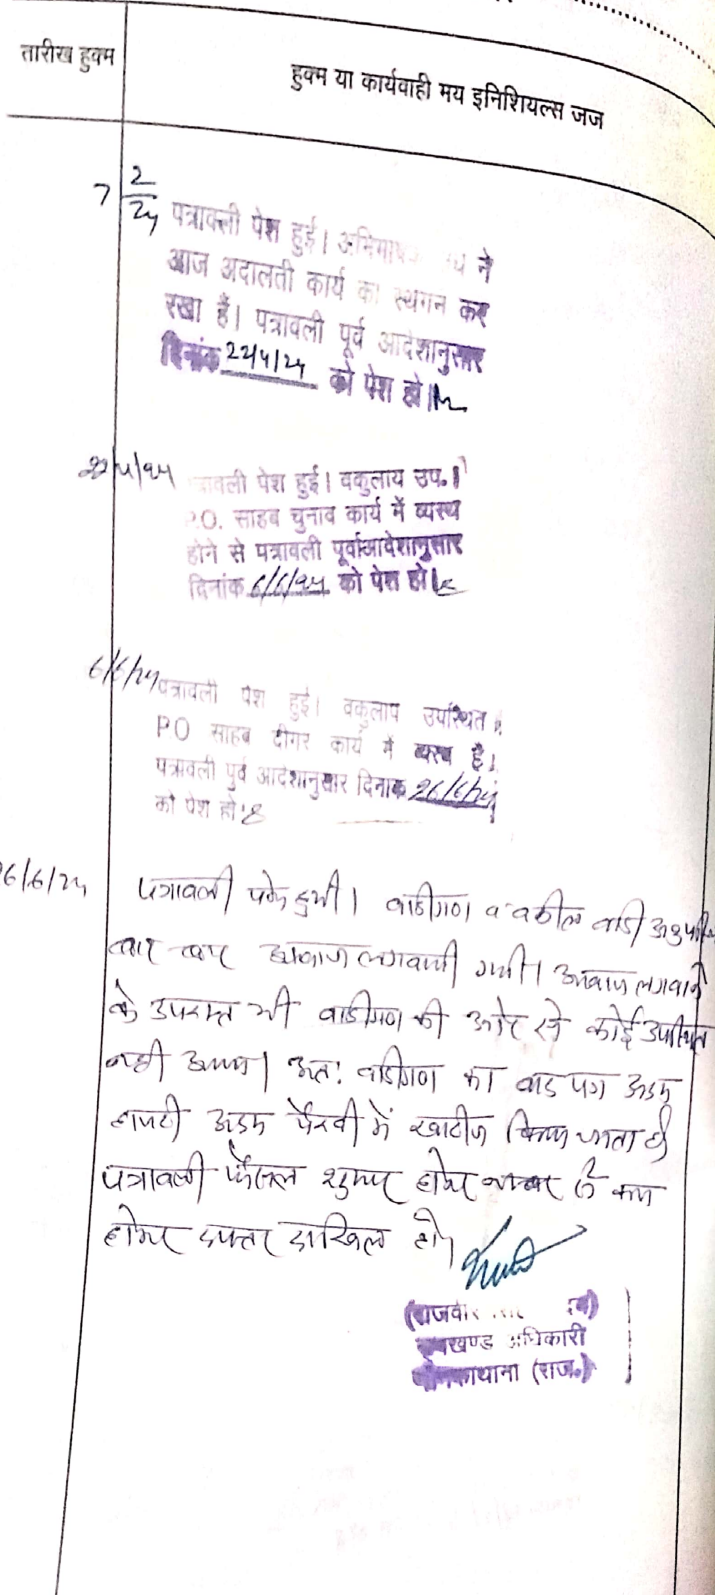 तारीख हुक्म
हुक्म या कार्यवाही मय इनिशियल्स जज
7 2/24 पत्रावली पेश हुई। ने
आज अदालती कार्य का स्थगन कर
रखा है। पत्रावली पूर्व आदेशानुसार
दिनांक 22/4/24 को पेश हो।
22/4/24 पत्रावली पेश हुई। वकुलाय उप.।
P.O. साहब चुनाव कार्य में व्यस्थ
होने से पत्रावली पूर्वआदेशानुसार
दिनांक 6/6/24 को पेश हो।
6/6/24 पत्रावली पेश हुई। वकुलाय उपस्थित।
P.O साहब दीगर कार्य में व्यस्थ है।
पत्रावली पुर्व आदेशानुसार दिनांक 26/6/24
को पेश हो।
26/6/24 पत्रावली पेश हुयी। वादीगण व वकील वादी
बार बार आवाज लगवायी गयी। आवाज लगवाने
के उपरान्त भी वादीगण की ओर से कोई उपस्थित
नही आया। अतः वादीगण का वाद पत्र अदम
हाजरी अदम पैरवी में खारीज किया जाता है।
पत्रावली फैसल शुमार होकर नम्बर से कम
होकर दफ्तर दाखिल हो।
उपखण्ड अधिकारी
नीमकाथाना (राज.)